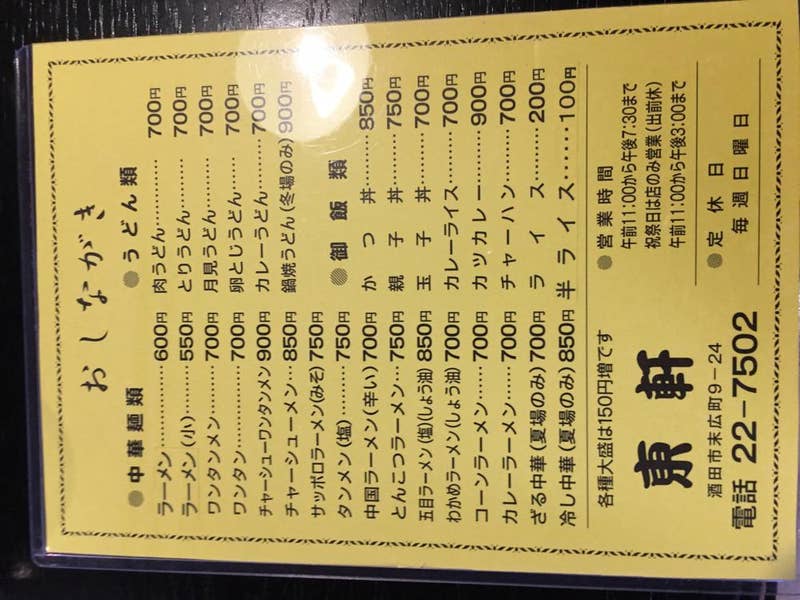 おしながき
●中華麺類
ラーメン…………600円
ラーメン(小)……550円
ワンタンメン……700円
ワンタン…………700円
チャーシューワンタンメン 900円
チャーシューメン…850円
サッポロラーメン(みそ) 750円
タンメン(塩)……750円
中国ラーメン(辛い) 700円
とんこつラーメン…750円
五目ラーメン(塩)(しょう油) 850円
わかめラーメン(しょう油) 700円
コーンラーメン……700円
カレーラーメン……700円
ざる中華(夏場のみ) 700円
冷し中華(夏場のみ) 850円
●うどん類
肉うどん…………700円
とりうどん………700円
月見うどん………700円
卵とじうどん……700円
カレーうどん……700円
鍋焼うどん(冬場のみ) 900円
●御飯類
かつ丼…………850円
親子丼…………750円
玉子丼…………700円
カレーライス……700円
カツカレー………900円
チャーハン………700円
ライス…………200円
半ライス………100円
各種大盛は150円増です
東軒
酒田市末広町9-24
電話 22-7502
●営業時間
午前11:00から午後7:30まで
祝祭日は店のみ営業(出前休)
午前11:00から午後3:00まで
●定休日
毎週日曜日